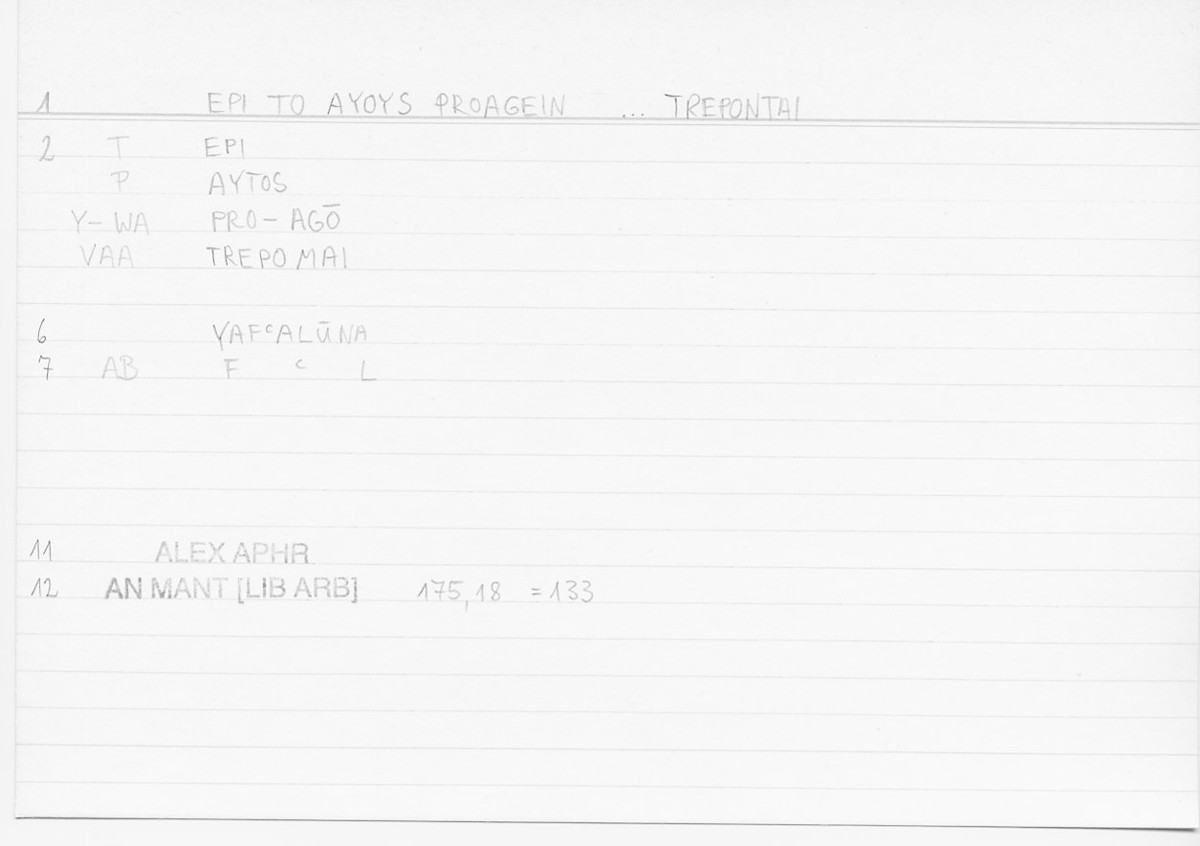 1 EPI TO AYOYS PROAGEIN ... TREPONTAI
2 T EPI
P AYTOS
Y-WA PRO-AGŌ
VAA TREPOMAI
6 YAFᶜALŪNA
7 AB F ᶜ L
11 ALEX APHR
12 AN MANT [LIB ARB] 175,18 =133